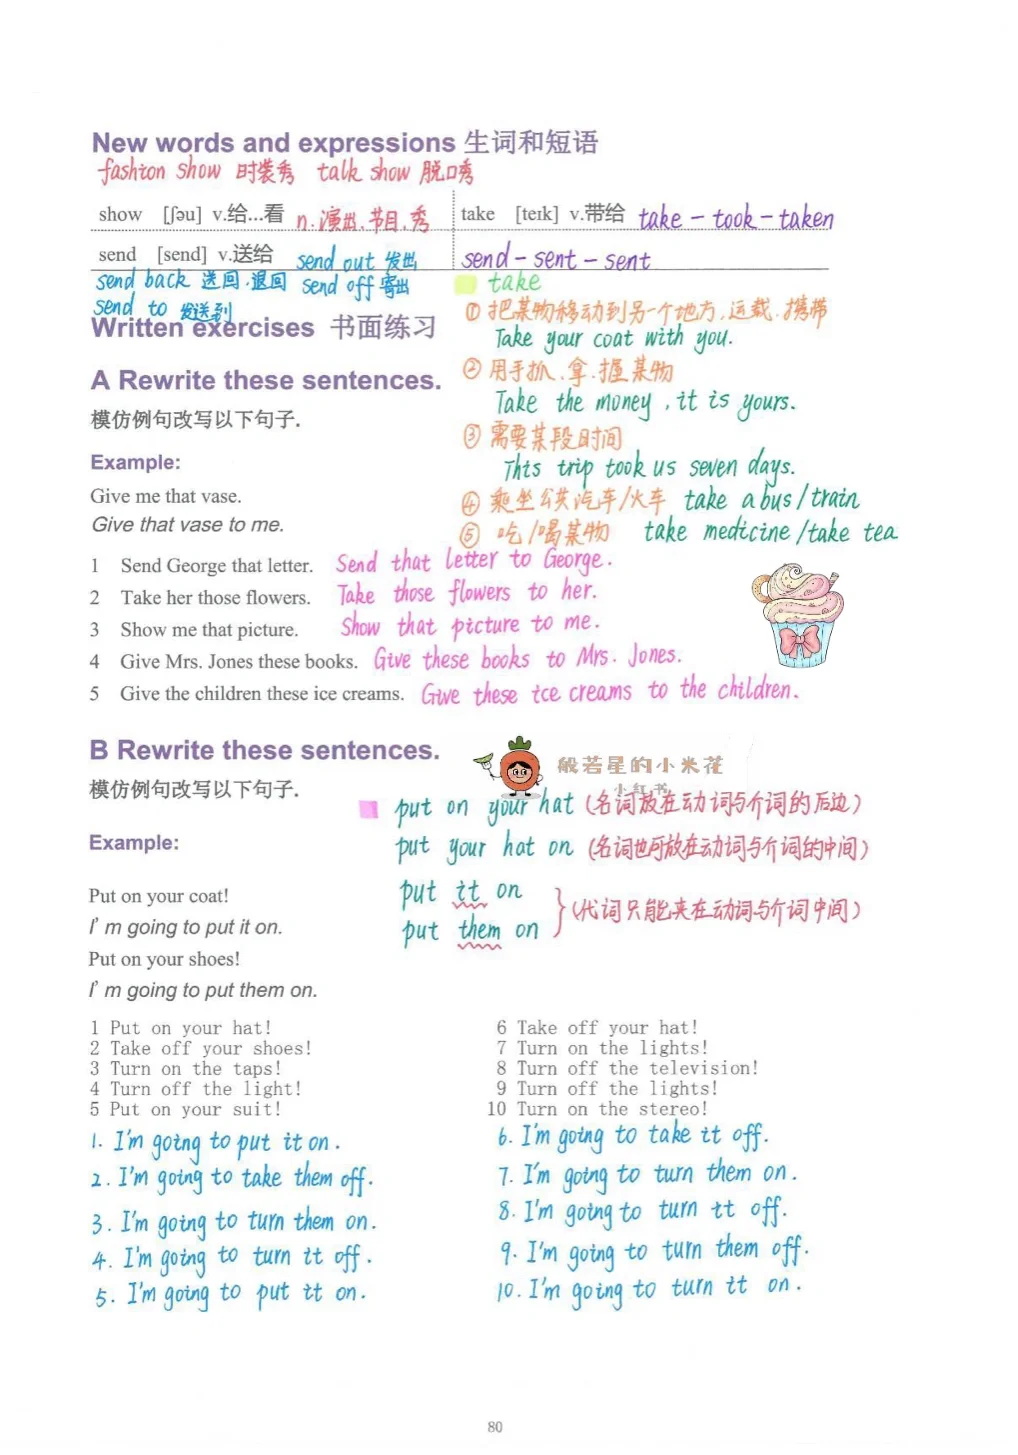 New words and expressions 生词和短语
fashion show 时装秀 talk show 脱口秀
show [ʃəu] v.给...看 n.演出.节目.秀
take [teɪk] v.带给 take - took - taken
send [send] v.送给 send out 发出
send - sent - sent
send back 送回.退回 send off 寄出
send to 发送到
take
① 把某物移动到另一个地方.运载.携带
Take your coat with you.
② 用手抓.拿.握某物
Take the money , it is yours.
③ 需要某段时间
This trip took us seven days.
④ 乘坐公共汽车/火车 take a bus/train
⑤ 吃/喝某物 take medicine/take tea
Written exercises 书面练习
A Rewrite these sentences.
模仿例句改写以下句子.
Example:
Give me that vase.
Give that vase to me.
1 Send George that letter. Send that letter to George.
2 Take her those flowers. Take those flowers to her.
3 Show me that picture. Show that picture to me.
4 Give Mrs. Jones these books. Give these books to Mrs. Jones.
5 Give the children these ice creams. Give these ice creams to the children.
B Rewrite these sentences.
模仿例句改写以下句子.
般若星的小米花
小红书
put on your hat (名词放在动词与介词的后边)
put your hat on (名词也可放在动词与介词的中间)
put it on
put them on
(代词只能夹在动词与介词中间)
Example:
Put on your coat!
I' m going to put it on.
Put on your shoes!
I' m going to put them on.
1 Put on your hat!
2 Take off your shoes!
3 Turn on the taps!
4 Turn off the light!
5 Put on your suit!
6 Take off your hat!
7 Turn on the lights!
8 Turn off the television!
9 Turn off the lights!
10 Turn on the stereo!
1. I'm going to put it on.
2. I'm going to take them off.
3. I'm going to turn them on.
4. I'm going to turn it off.
5. I'm going to put it on.
6. I'm going to take it off.
7. I'm going to turn them on.
8. I'm going to turn it off.
9. I'm going to turn them off.
10. I'm going to turn it on.
80